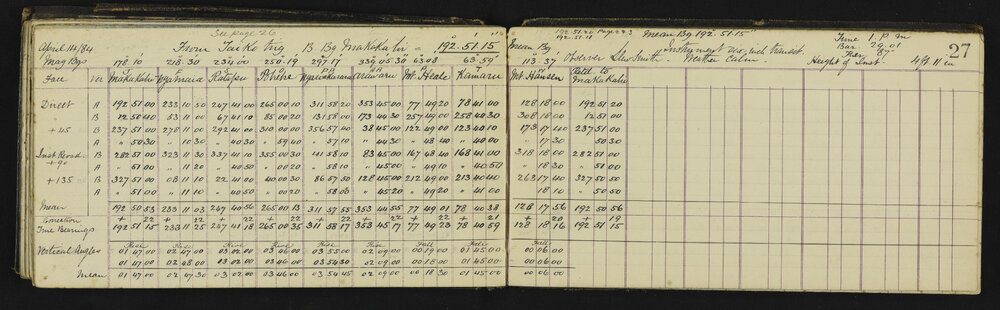 See page 26
192.51.20 Page 283 Mean Bg 192.51.15"
192.51.18
April 14/84 From Taiko Trig B Bg Makakahi = 192.51.15 Mean Bg Instrument six inch transit Time 1.P.m 27
Bar 29.01
Mag Bgs 178.10 218.30 234.00 250.19 297.17 339.05.30 63.08 63.59' 113.37 Observer Weather Calm Height of Inst. 4ft 11 in
Face Ver Makakahi Ngamaia Mt Heale Kamaru Mt Hansen Makakahi
Direct A 192 51 00 233 10 50 247 41 00 265 00 10 311 58 20 353 45 00 77 49 20 78 41 00 128 18 00 192 51 20
B 12 50 40 53 11 00 67 41 10 85 00 20 131 58 00 173 44 30 257 49 00 258 40 30 308 18 00 12 51 00
+45 B 237 51 00 278 11 00 292 41 00 310 00 00 356 57 40 38 45 00 122 49 00 123 40 10 173 17 40 237 51 00
A " 50 30 " 10 30 " 40 30 " 59 40 " 57 10 " 44 30 " 48 40 " 40 00 " 17 30 50 30
Inst Revsd B 282 51 00 323 11 30 337 41 10 355 00 30 41 58 10 83 45 00 167 48 40 168 41 00 318 18 00 282 51 00
+90 A " 51 00 " 11 20 " 40 50 " 00 20 " 58 10 " 45 00 " 49 10 " 40 50 " 18 30 51 00
+135 B 327 51 00 08 11 10 22 41 00 40 00 30 86 57 50 128 45 00 212 49 00 213 40 40 263 17 40 327 50 50
A " 51 00 " 11 10 " 40 50 " 00 20 " 58 00 " 45 20 " 49 20 " 41 00 " 18 10 " 50 50
Mean 192 50 53 233 11 03 247 40 56 265 00 13 311 57 55 353 44 55 77 49 01 78 40 38 128 17 56 192 50 56
Correction + 22 + 22 + 22 + 22 + 22 + 22 + 22 + 21 + 20 + 19
True Bearings 192 51 15 233 11 25 247 41 18 265 00 35 311 58 17 353 45 17 77 49 23 78 40 59 128 18 16 192 51 15
Rise Rise Rise Rise Rise Rise Fall Fall Fall
Vertical Angles 01 47 00 02 47 00 03 02 00 03 46 00 03 55 00 02 09 00 00 19 00 01 45 00 00 06 00
01 47 00 02 48 00 03 02 00 03 46 00 03 54 30 02 09 00 00 18 00 01 45 00 00 06 00
Mean 01 47 00 02 47 30 03 02 00 03 46 00 03 54 45 02 09 00 00 18 30 01 45 00 00 06 00